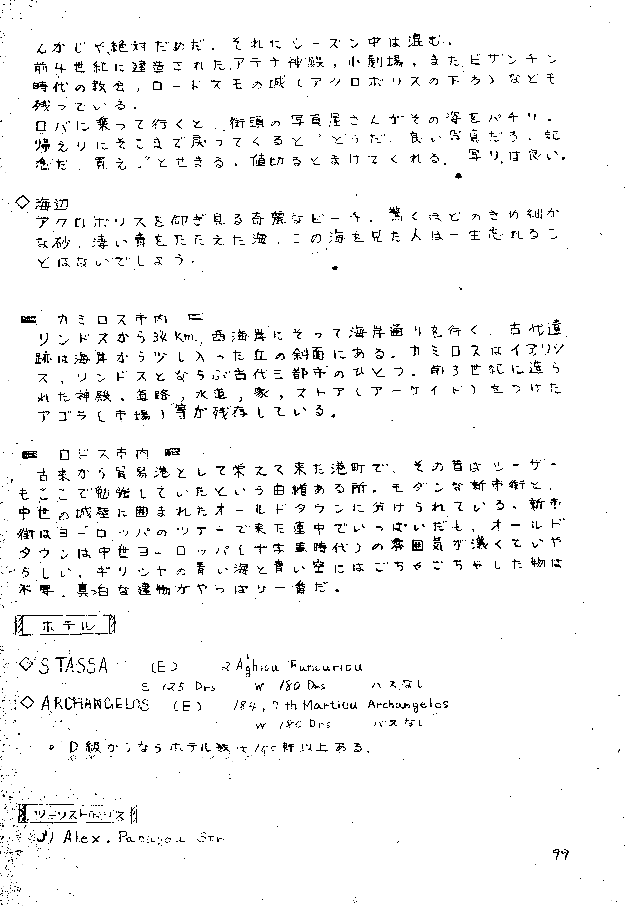 んかじゃ絶対だめだ。それにシーズン中は混む。
前4世紀に建造されたアテナ神殿，小劇場，またビザンチン
時代の教会，ロードスモの城（アクロポリスの下ろ）なども
残っている。
ロバに乗って行くと，街頭の写真屋さんがその姿をパチリ。
帰えりにそこまで戻ってくると「どうだ，良い写真だろ，記
念だ，買え」とせまる。値切るとまけてくれる。写りは良い。
◇海辺
アクロポリスを仰ぎ見る奇麗なビーチ。驚くほどのきめ細か
な砂，凄い青をたたえた海，この海を見た人は一生忘れるこ
とはないでしょう。
カミロス市内
リンドスから34Km，西海岸にそって海岸通りを行く。古代遺
跡は海岸から少し入った丘の斜面にある。カミロスはイアリソ
ス，リンドスとならぶ古代三都市のひとつ。前3世紀に造ら
れた神殿，道路，水道，家，ストア（アーケイド）をつけた
アゴラ（市場）等が残存している。
ロドス市内
古来から貿易港として栄えて来た港町で，その昔はシーザー
もここで勉強していたという由緒ある所。モダンな新市街と，
中世の城壁に囲まれたオールドタウンに分けられている。新市
街はヨーロッパのツアーで来た連中でいっぱいだも，オールド
タウンは中世ヨーロッパ（十字軍時代）の雰囲気が濃くていや
らしい。ギリシャの青い海と青い空にはごちゃごちゃした物は
不要，真白な建物がやっぱり一番だ。
ホテル
◇STASSA (E) 2 Aghiou
S 125 Drs W 180 Drs バスなし
◇ARCHANGELOS (E) 184, 7th Martiou Archangelos
W 180 Drs バスなし
○ D級からならホテル数は100軒以上ある。
ツーリストポリス
Alex. Papagou Str
99